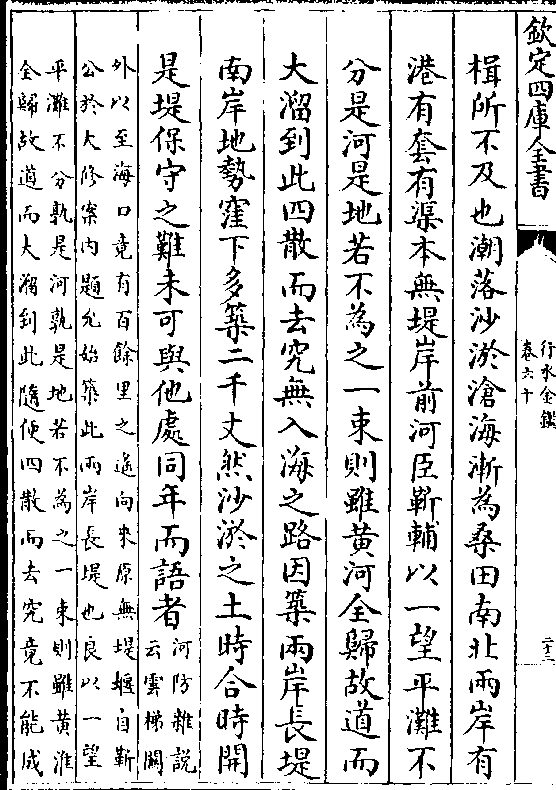 欽定四庫全書
行水金鑑
卷六十
二十三
楫所不及也潮落沙淤滄海漸為桑田南北兩岸有
港有套有渠本無堤岸前河臣靳輔以一望平灘不
分是河是地若不為之一束則雖黄河全歸故道而
大溜到此四散而去究無入海之路因築兩岸長堤
南岸地勢窪下多築二千丈然沙淤之土時合時開
是堤保守之難未可與他處同年而語者
河防雜說
云雲梯關
外以至海口竟有百餘里之遥向來原無堤堰自靳
公於大修案内題允始築此兩岸長堤也良以一望
平灘不分孰是河孰是地若不為之一束則雖黄淮
全歸故道而大溜到此隨便四散而去究竟不能成